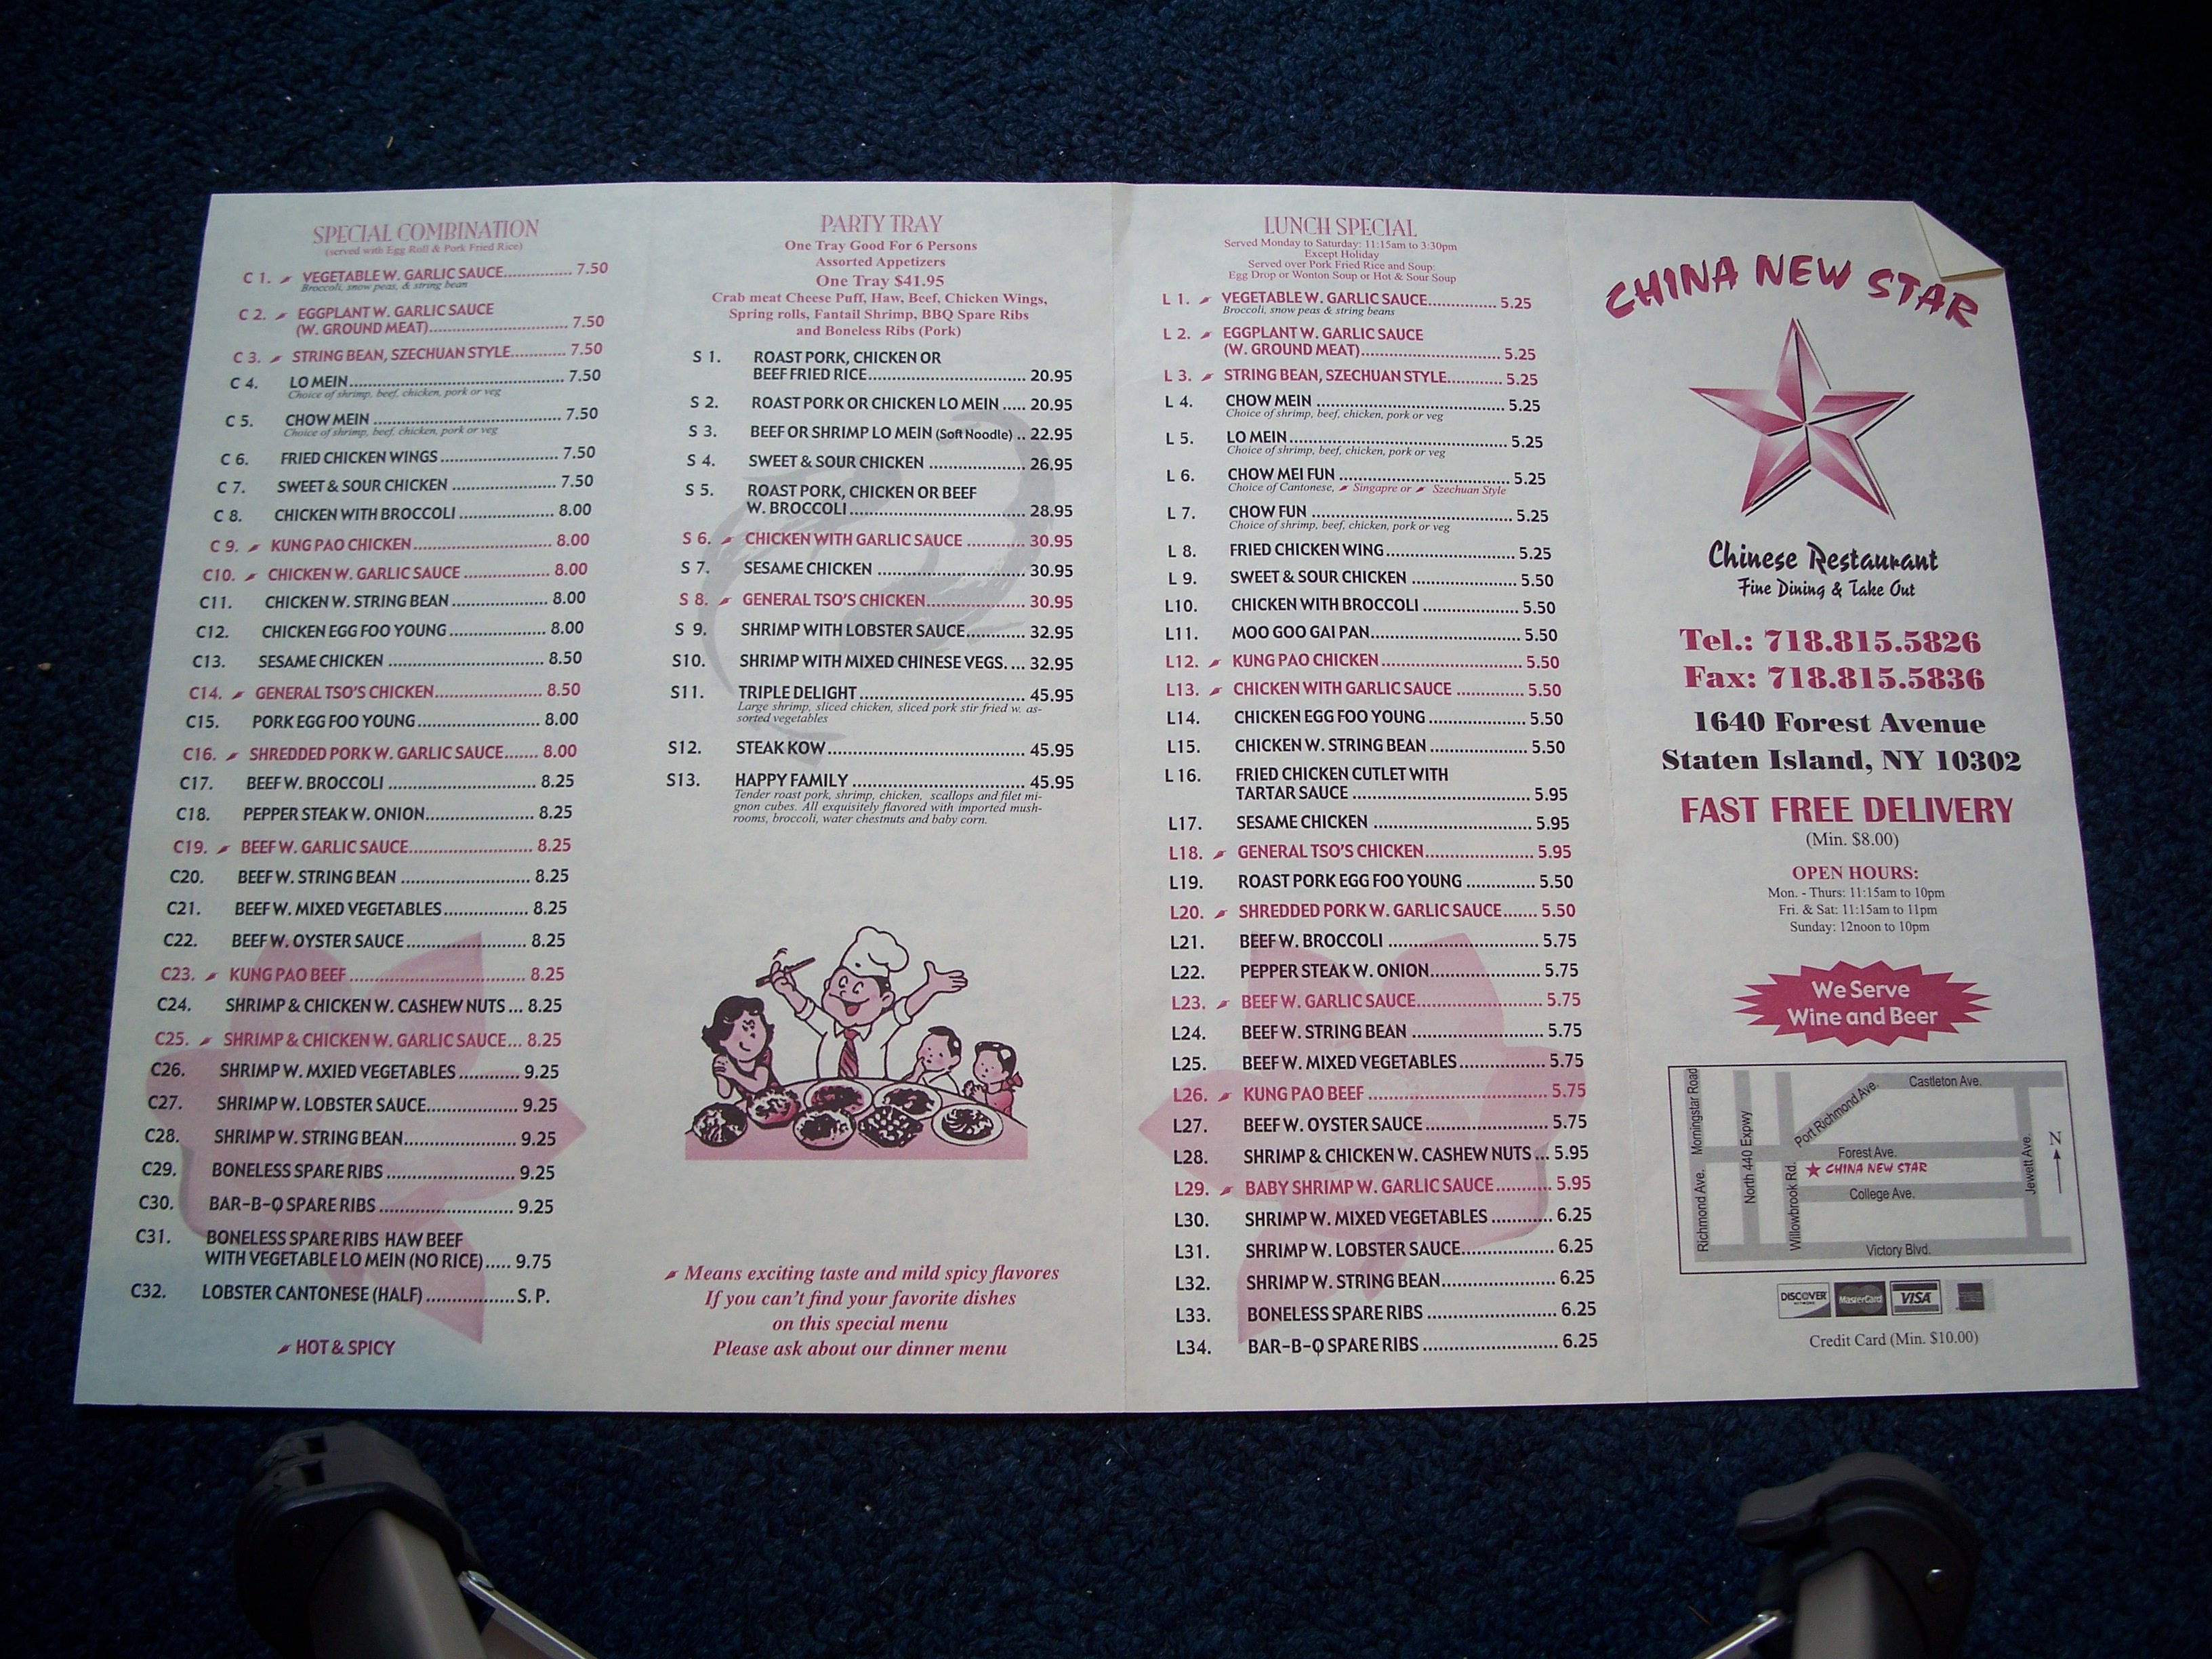 SPECIAL COMBINATION
(served with Egg Roll & Pork Fried Rice)
C 1. VEGETABLE W. GARLIC SAUCE............... 7.50
Broccoli, snow peas, & string bean
C 2. EGGPLANT W. GARLIC SAUCE
(W. GROUND MEAT)............................... 7.50
C 3. STRING BEAN, SZECHUAN STYLE............ 7.50
C 4. LO MEIN................................................ 7.50
Choice of shrimp, beef, chicken, pork or veg
C 5. CHOW MEIN .......................................... 7.50
Choice of shrimp, beef, chicken, pork or veg
C 6. FRIED CHICKEN WINGS .......................... 7.50
C 7. SWEET & SOUR CHICKEN ....................... 7.50
C 8. CHICKEN WITH BROCCOLI ..................... 8.00
C 9. KUNG PAO CHICKEN............................... 8.00
C10. CHICKEN W. GARLIC SAUCE .................... 8.00
C11. CHICKEN W. STRING BEAN...................... 8.00
C12. CHICKEN EGG FOO YOUNG...................... 8.00
C13. SESAME CHICKEN ................................... 8.50
C14. GENERAL TSO'S CHICKEN......................... 8.50
C15. PORK EGG FOO YOUNG........................... 8.00
C16. SHREDDED PORK W. GARLIC SAUCE....... 8.00
C17. BEEF W. BROCCOLI ................................. 8.25
C18. PEPPER STEAK W. ONION........................ 8.25
C19. BEEF W. GARLIC SAUCE............................ 8.25
C20. BEEF W. STRING BEAN ............................. 8.25
C21. BEEF W. MIXED VEGETABLES................... 8.25
C22. BEEF W. OYSTER SAUCE ........................... 8.25
C23. KUNG PAO BEEF ....................................... 8.25
C24. SHRIMP & CHICKEN W. CASHEW NUTS ... 8.25
C25. SHRIMP & CHICKEN W. GARLIC SAUCE... 8.25
C26. SHRIMP W. MXIED VEGETABLES ............. 9.25
C27. SHRIMP W. LOBSTER SAUCE..................... 9.25
C28. SHRIMP W. STRING BEAN.......................... 9.25
C29. BONELESS SPARE RIBS ............................. 9.25
C30. BAR-B-Q SPARE RIBS .............................. 9.25
C31. BONELESS SPARE RIBS HAW BEEF
WITH VEGETABLE LO MEIN (NO RICE)..... 9.75
C32. LOBSTER CANTONESE (HALF) .................S. P.
HOT & SPICY
PARTY TRAY
One Tray Good For 6 Persons
Assorted Appetizers
One Tray $41.95
Crab meat Cheese Puff, Haw, Beef, Chicken Wings,
Spring rolls, Fantail Shrimp, BBQ Spare Ribs
and Boneless Ribs (Pork)
S 1. ROAST PORK, CHICKEN OR
BEEF FRIED RICE.................................... 20.95
S 2. ROAST PORK OR CHICKEN LO MEIN ..... 20.95
S 3. BEEF OR SHRIMP LO MEIN (Soft Noodle) .. 22.95
S 4. SWEET & SOUR CHICKEN ...................... 26.95
S 5. ROAST PORK, CHICKEN OR BEEF
W. BROCCOLI........................................ 28.95
S 6. CHICKEN WITH GARLIC SAUCE ............. 30.95
S 7. SESAME CHICKEN ................................. 30.95
S 8. GENERAL TSO'S CHICKEN...................... 30.95
S 9. SHRIMP WITH LOBSTER SAUCE............. 32.95
S10. SHRIMP WITH MIXED CHINESE VEGS. ... 32.95
S11. TRIPLE DELIGHT ..................................... 45.95
Large shrimp, sliced chicken, sliced pork stir fried w. as-
sorted vegetables
S12. STEAK KOW............................................ 45.95
S13. HAPPY FAMILY ...................................... 45.95
Tender roast pork, shrimp, chicken, scallops and filet mi-
gnon cubes. All exquisitely flavored with imported mush-
rooms, broccoli, water chestnuts and baby corn.
Means exciting taste and mild spicy flavores
If you can't find your favorite dishes
on this special menu
Please ask about our dinner menu
LUNCH SPECIAL
Served Monday to Saturday: 11:15am to 3:30pm
Except Holiday
Served over Pork Fried Rice and Soup:
Egg Drop or Wonton Soup or Hot & Sour Soup
L 1. VEGETABLE W. GARLIC SAUCE............... 5.25
Broccoli, snow peas & string beans
L 2. EGGPLANT W. GARLIC SAUCE
(W. GROUND MEAT)............................... 5.25
L 3. STRING BEAN, SZECHUAN STYLE............ 5.25
L 4. CHOW MEIN .......................................... 5.25
Choice of shrimp, beef, chicken, pork or veg
L 5. LO MEIN................................................ 5.25
Choice of shrimp, beef, chicken, pork or veg
L 6. CHOW MEI FUN ...................................... 5.25
Choice of Cantonese, Singapre or Szechuan Style
L 7. CHOW FUN ............................................ 5.25
Choice of shrimp, beef, chicken, pork or veg
L 8. FRIED CHICKEN WING............................. 5.25
L 9. SWEET & SOUR CHICKEN ....................... 5.50
L10. CHICKEN WITH BROCCOLI ..................... 5.50
L11. MOO GOO GAI PAN................................. 5.50
L12. KUNG PAO CHICKEN............................... 5.50
L13. CHICKEN WITH GARLIC SAUCE ............... 5.50
L14. CHICKEN EGG FOO YOUNG ..................... 5.50
L15. CHICKEN W. STRING BEAN ..................... 5.50
L16. FRIED CHICKEN CUTLET WITH
TARTAR SAUCE ....................................... 5.95
L17. SESAME CHICKEN ................................... 5.95
L18. GENERAL TSO'S CHICKEN........................ 5.95
L19. ROAST PORK EGG FOO YOUNG ............... 5.50
L20. SHREDDED PORK W. GARLIC SAUCE....... 5.50
L21. BEEF W. BROCCOLI ................................. 5.75
L22. PEPPER STEAK W. ONION........................ 5.75
L23. BEEF W. GARLIC SAUCE............................ 5.75
L24. BEEF W. STRING BEAN ............................. 5.75
L25. BEEF W. MIXED VEGETABLES................... 5.75
L26. KUNG PAO BEEF ...................................... 5.75
L27. BEEF W. OYSTER SAUCE .......................... 5.75
L28. SHRIMP & CHICKEN W. CASHEW NUTS ... 5.95
L29. BABY SHRIMP W. GARLIC SAUCE............ 5.95
L30. SHRIMP W. MIXED VEGETABLES ............ 6.25
L31. SHRIMP W. LOBSTER SAUCE.................... 6.25
L32. SHRIMP W. STRING BEAN........................ 6.25
L33. BONELESS SPARE RIBS ............................ 6.25
L34. BAR-B-Q SPARE RIBS .............................. 6.25
CHINA NEW STAR
Chinese Restaurant
Fine Dining & Take Out
Tel.: 718.815.5826
Fax: 718.815.5836
1640 Forest Avenue
Staten Island, NY 10302
FAST FREE DELIVERY
(Min. $8.00)
OPEN HOURS:
Mon. - Thurs: 11:15am to 10pm
Fri. & Sat: 11:15am to 11pm
Sunday: 12noon to 10pm
We Serve
Wine and Beer
Morningstar Road
Richmond Ave.
North 440 Expwy
Willowbrook Rd.
Port Richmond Ave.
Castleton Ave.
Forest Ave.
CHINA NEW STAR
College Ave.
Jewett Ave.
N
Victory Blvd.
DISCOVER
MasterCard
VISA
Credit Card (Min. $10.00)